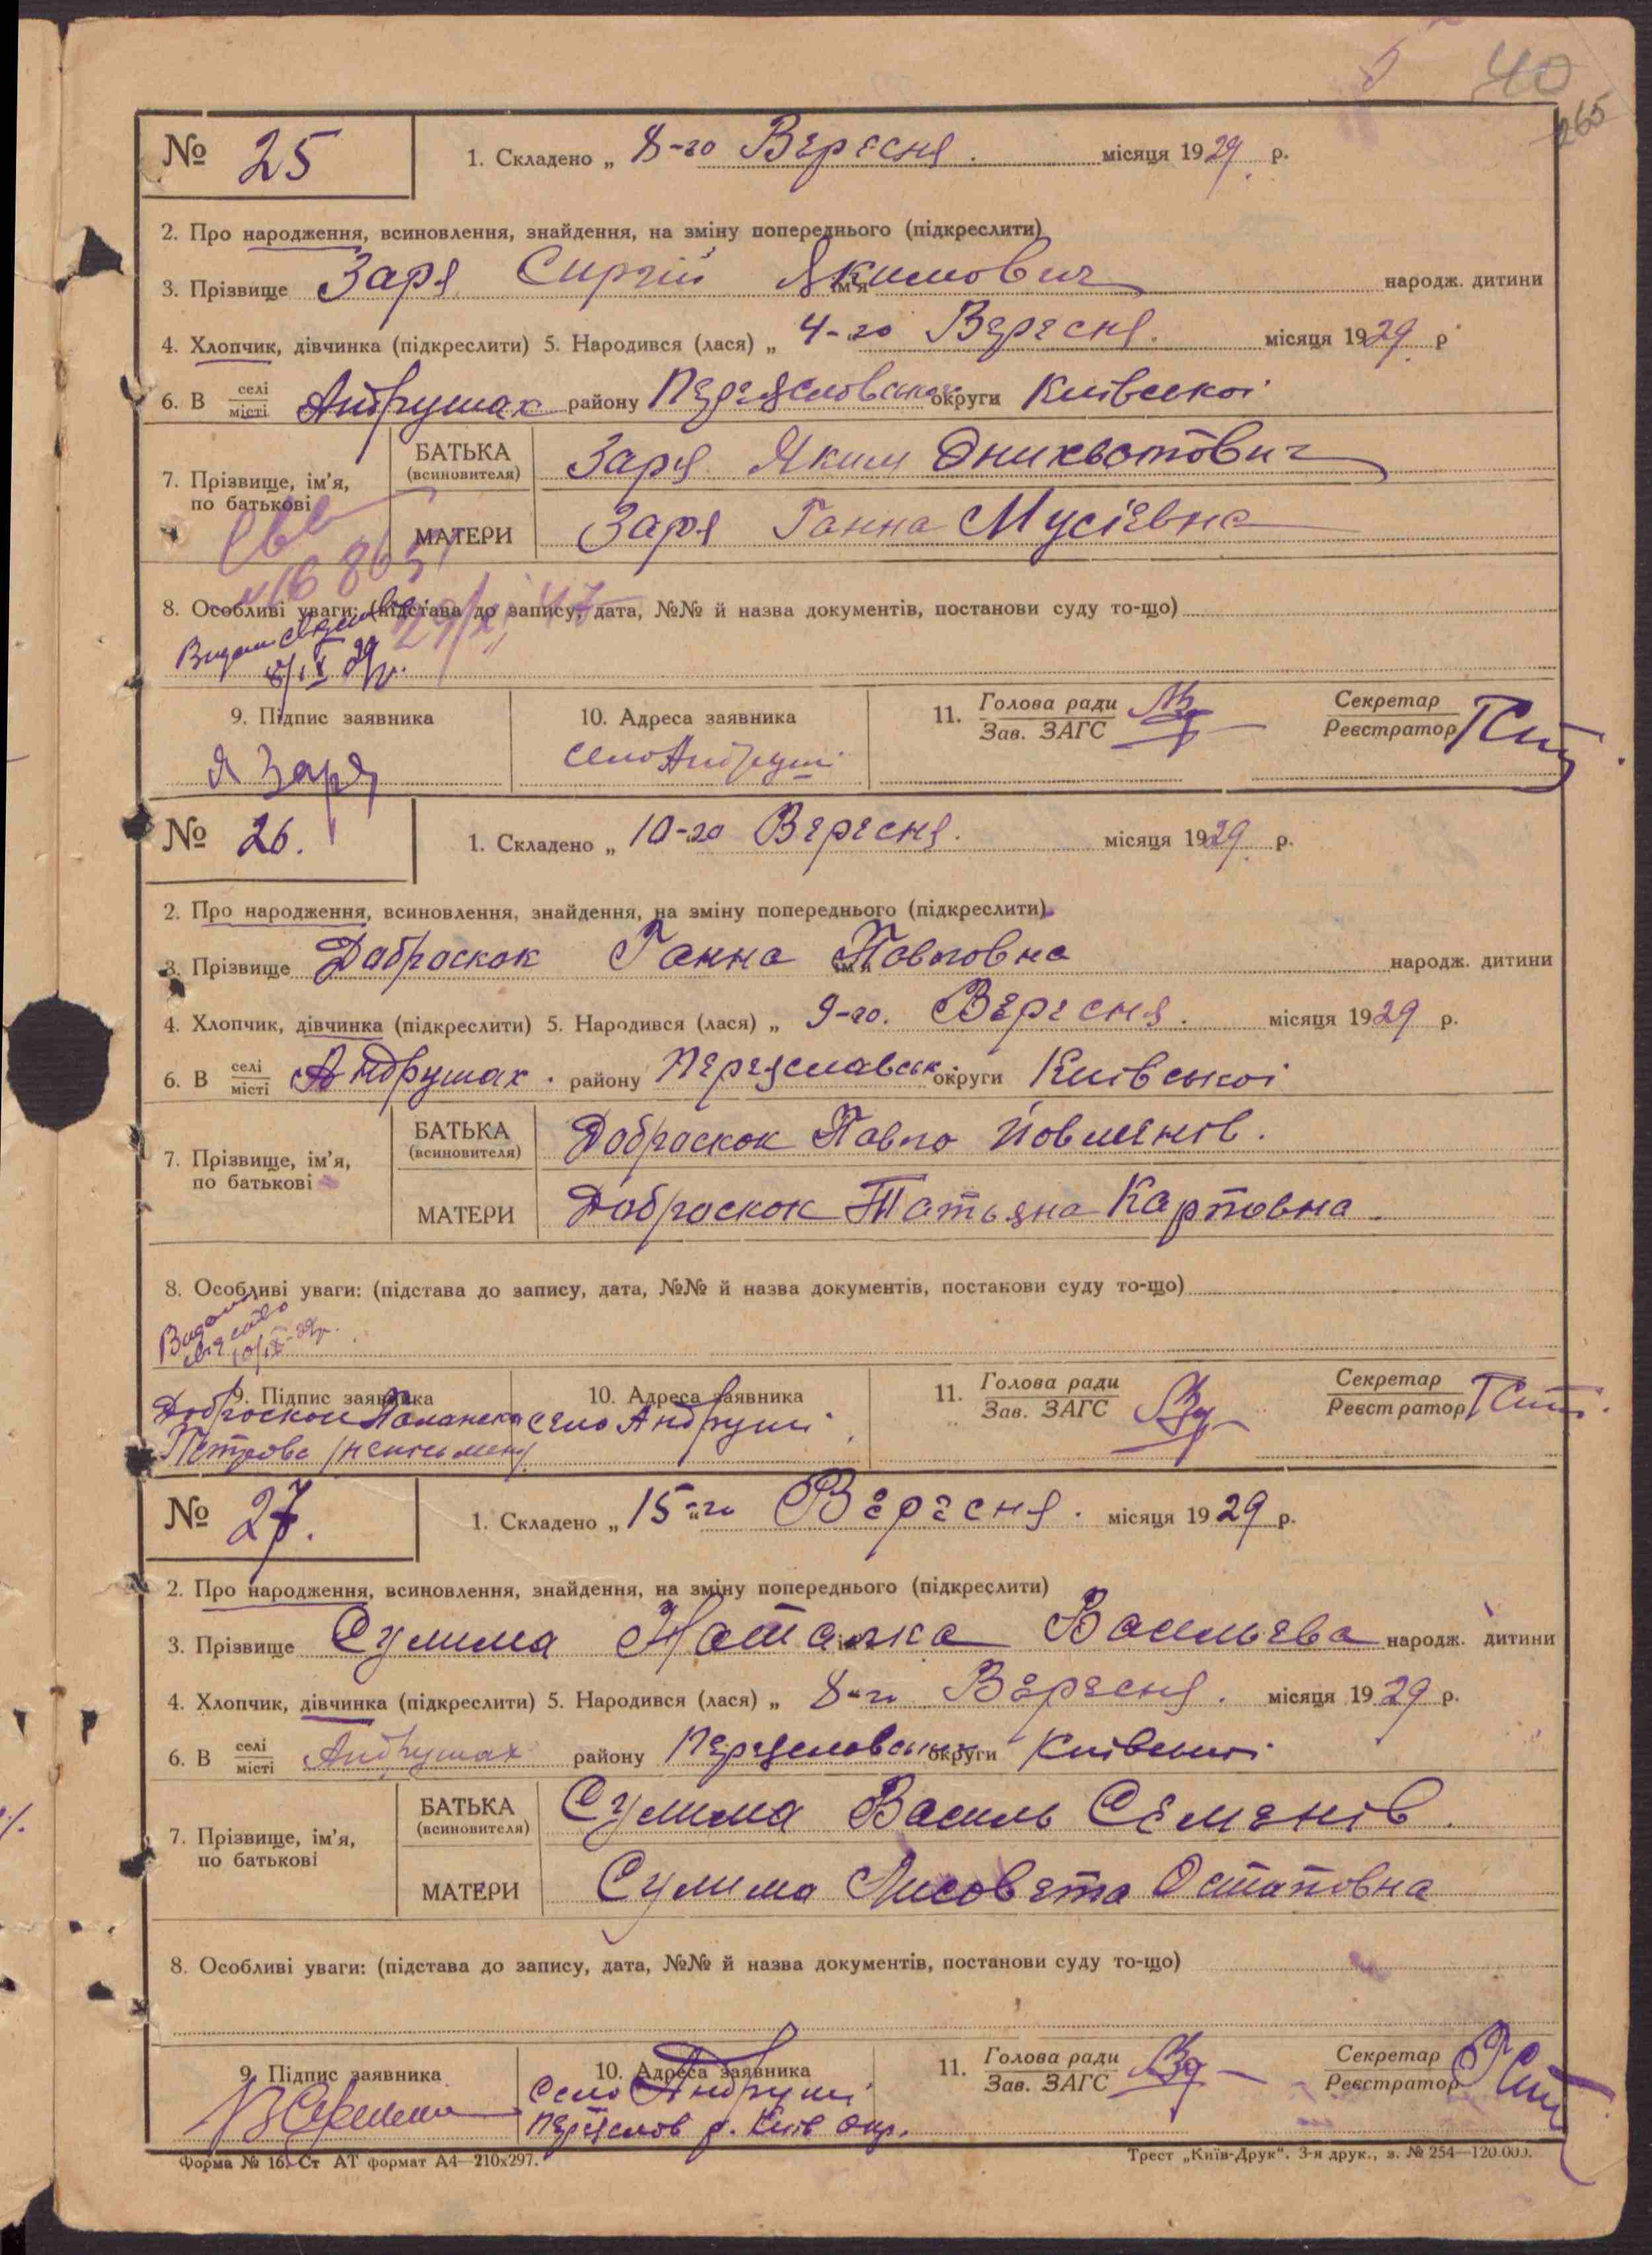 40
265
№ 25
1. Складено „ 8-го Вересня. місяця 1929 р.
2. Про народження, всиновлення, знайдення, на зміну попереднього (підкреслити)
3. Прізвище Заря Сиргій ім'я Якимович народж. дитини
4. Хлопчик, дівчинка (підкреслити) 5. Народився (лася) „ 4-го Вересня. місяця 1929 р
6. В селі/місті Андрушах району округи Київської
7. Прізвище, ім'я, по батькові
БАТЬКА (всиновителя) Заря Яким
МАТЕРИ Заря Ганна Мусієвна
8. Особливі уваги: (підстава до запису, дата, №№ й назва документів, постанови суду то-що)
9. Підпис заявника
10. Адреса заявника
11. Голова ради
Зав. ЗАГС
Секретар
Реєстратор
Я Заря
село Андруші
№ 26.
1. Складено „ 10-го Вересня. місяця 1929 р.
2. Про народження, всиновлення, знайдення, на зміну попереднього (підкреслити)
3. Прізвище Доброскок Ганна ім'я Павловна народж. дитини
4. Хлопчик, дівчинка (підкреслити) 5. Народився (лася) „ 9-го. Вересня. місяця 1929 р.
6. В селі/місті Андрушах. району Переяславськ. округи Київської
7. Прізвище, ім'я, по батькові
БАТЬКА (всиновителя) Доброскок Павло
МАТЕРИ Доброскок Татьяна Карповна
8. Особливі уваги: (підстава до запису, дата, №№ й назва документів, постакови суду то-що)
9. Підпис заявника
10. Адреса заявника
11. Голова ради
Зав. ЗАГС
Секретар
Реєстратор
Доброскок
село Андруші
№ 27.
1. Складено „ 15-го Вересня. місяця 1929 р.
2. Про народження, всиновлення, знайдення, на зміну попереднього (підкреслити)
3. Прізвище Сулима Наталка Васильева народж. дитини
4. Хлопчик, дівчинка (підкреслити) 5. Народився (лася) „ 8-го Вересня. місяця 1929 р.
6. В селі/місті Андрушах району округи Київської
7. Прізвище, ім'я, по батькові
БАТЬКА (всиновителя) Сулима Василь Семенів.
МАТЕРИ Сулима Лисовета Остаповна
8. Особливі уваги: (підстава до запису, дата, №№ й назва документів, постанови суду то-що)
9. Підпис заявника
10. Адреса заявника
11. Голова ради
Зав. ЗАГС
Секретар
Реєстратор
Село Андруші
Переяслов р. Київ окр.
Форма № 16. Ст АТ формат А4—210х297.
Трест „Київ-Друк“. 3-я друк., з. № 254—120.000.